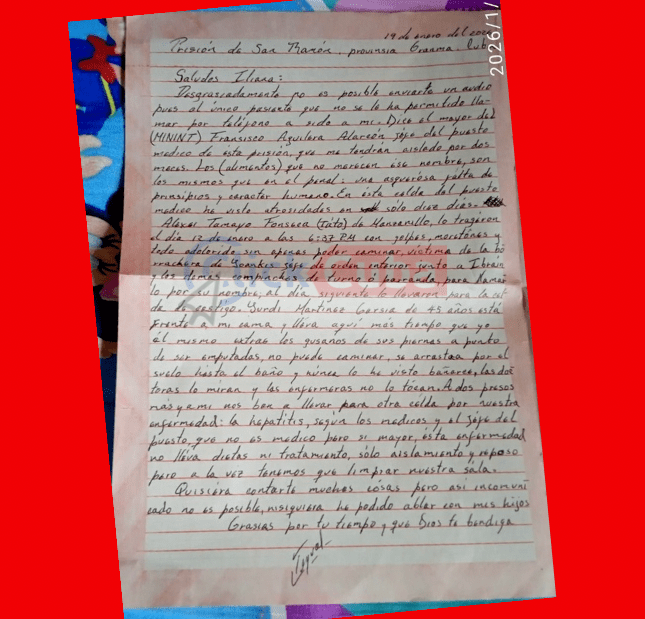 19 de enero del
2026/1/
Prisión de San Ramón, provinsia Granma. Cuba
Saludos Iliana:
Desgrasiadamente no es posible enviarte un audio
pues al único pasiente que no se le ha permitido lla-
mar por teléfono a sido a mi. Dice el mayor del
(MININT) Fransisco Aguilera Alarcón jéfe del puesto
medico de ésta prisión, que me tendrán aislado por dos
meses. Los (alimentos) que no merecen ese nombre, son
los mismos que en el penal: una asquerosa falta de
prinsipios y carácter humano. En ésta celda del puesto
medico he visto atrosidades en sólo diez dias.
Aléxer Tamayo Fonseca (Tato) de Manzanillo, lo trageron
el dia 12 de enero a las 6:37 P.M con golpes, moretónes y
todo adolorido sin apenas poder caminar, víctima de la bo-
rrachera de Yoankis jéfe de orden interior junto a Ibraín
y los demas compinchos de turno ó parranda, para llamar-
lo por su nombre, al dia siguiente lo llevaron para la cel-
da de castigo. Yurdi Martínez Garsia de 45 años está
frente a mi cama y lleva aqui más tiempo que yo
él mismo extrae los gusanos de sus piernas a punto
de ser emputadas, no puede caminar, se arrastra por el
suelo hasta el baño y núnca lo he visto bañarce, las doc-
toras lo miran y las enfermeras no lo tocan. A dos presos
más y a mi nos ban a llevar para otra célda por nuestra
enfermedad: la hepatitis, según los medicos y el jéfe del
puesto, que no es medico pero si mayor, ésta enfermedad
no lléva dietas ni tratamiento, sólo aislamiento y reposo
pero a la vez tenemos que limpiar nuestra sála.
Quisiéra contarte muchas cósas pero asi incomuni-
cado no es posible, nisiquiera he podido ablar con mis hijos
Grasias por tu tiempo y que Dios te bendiga